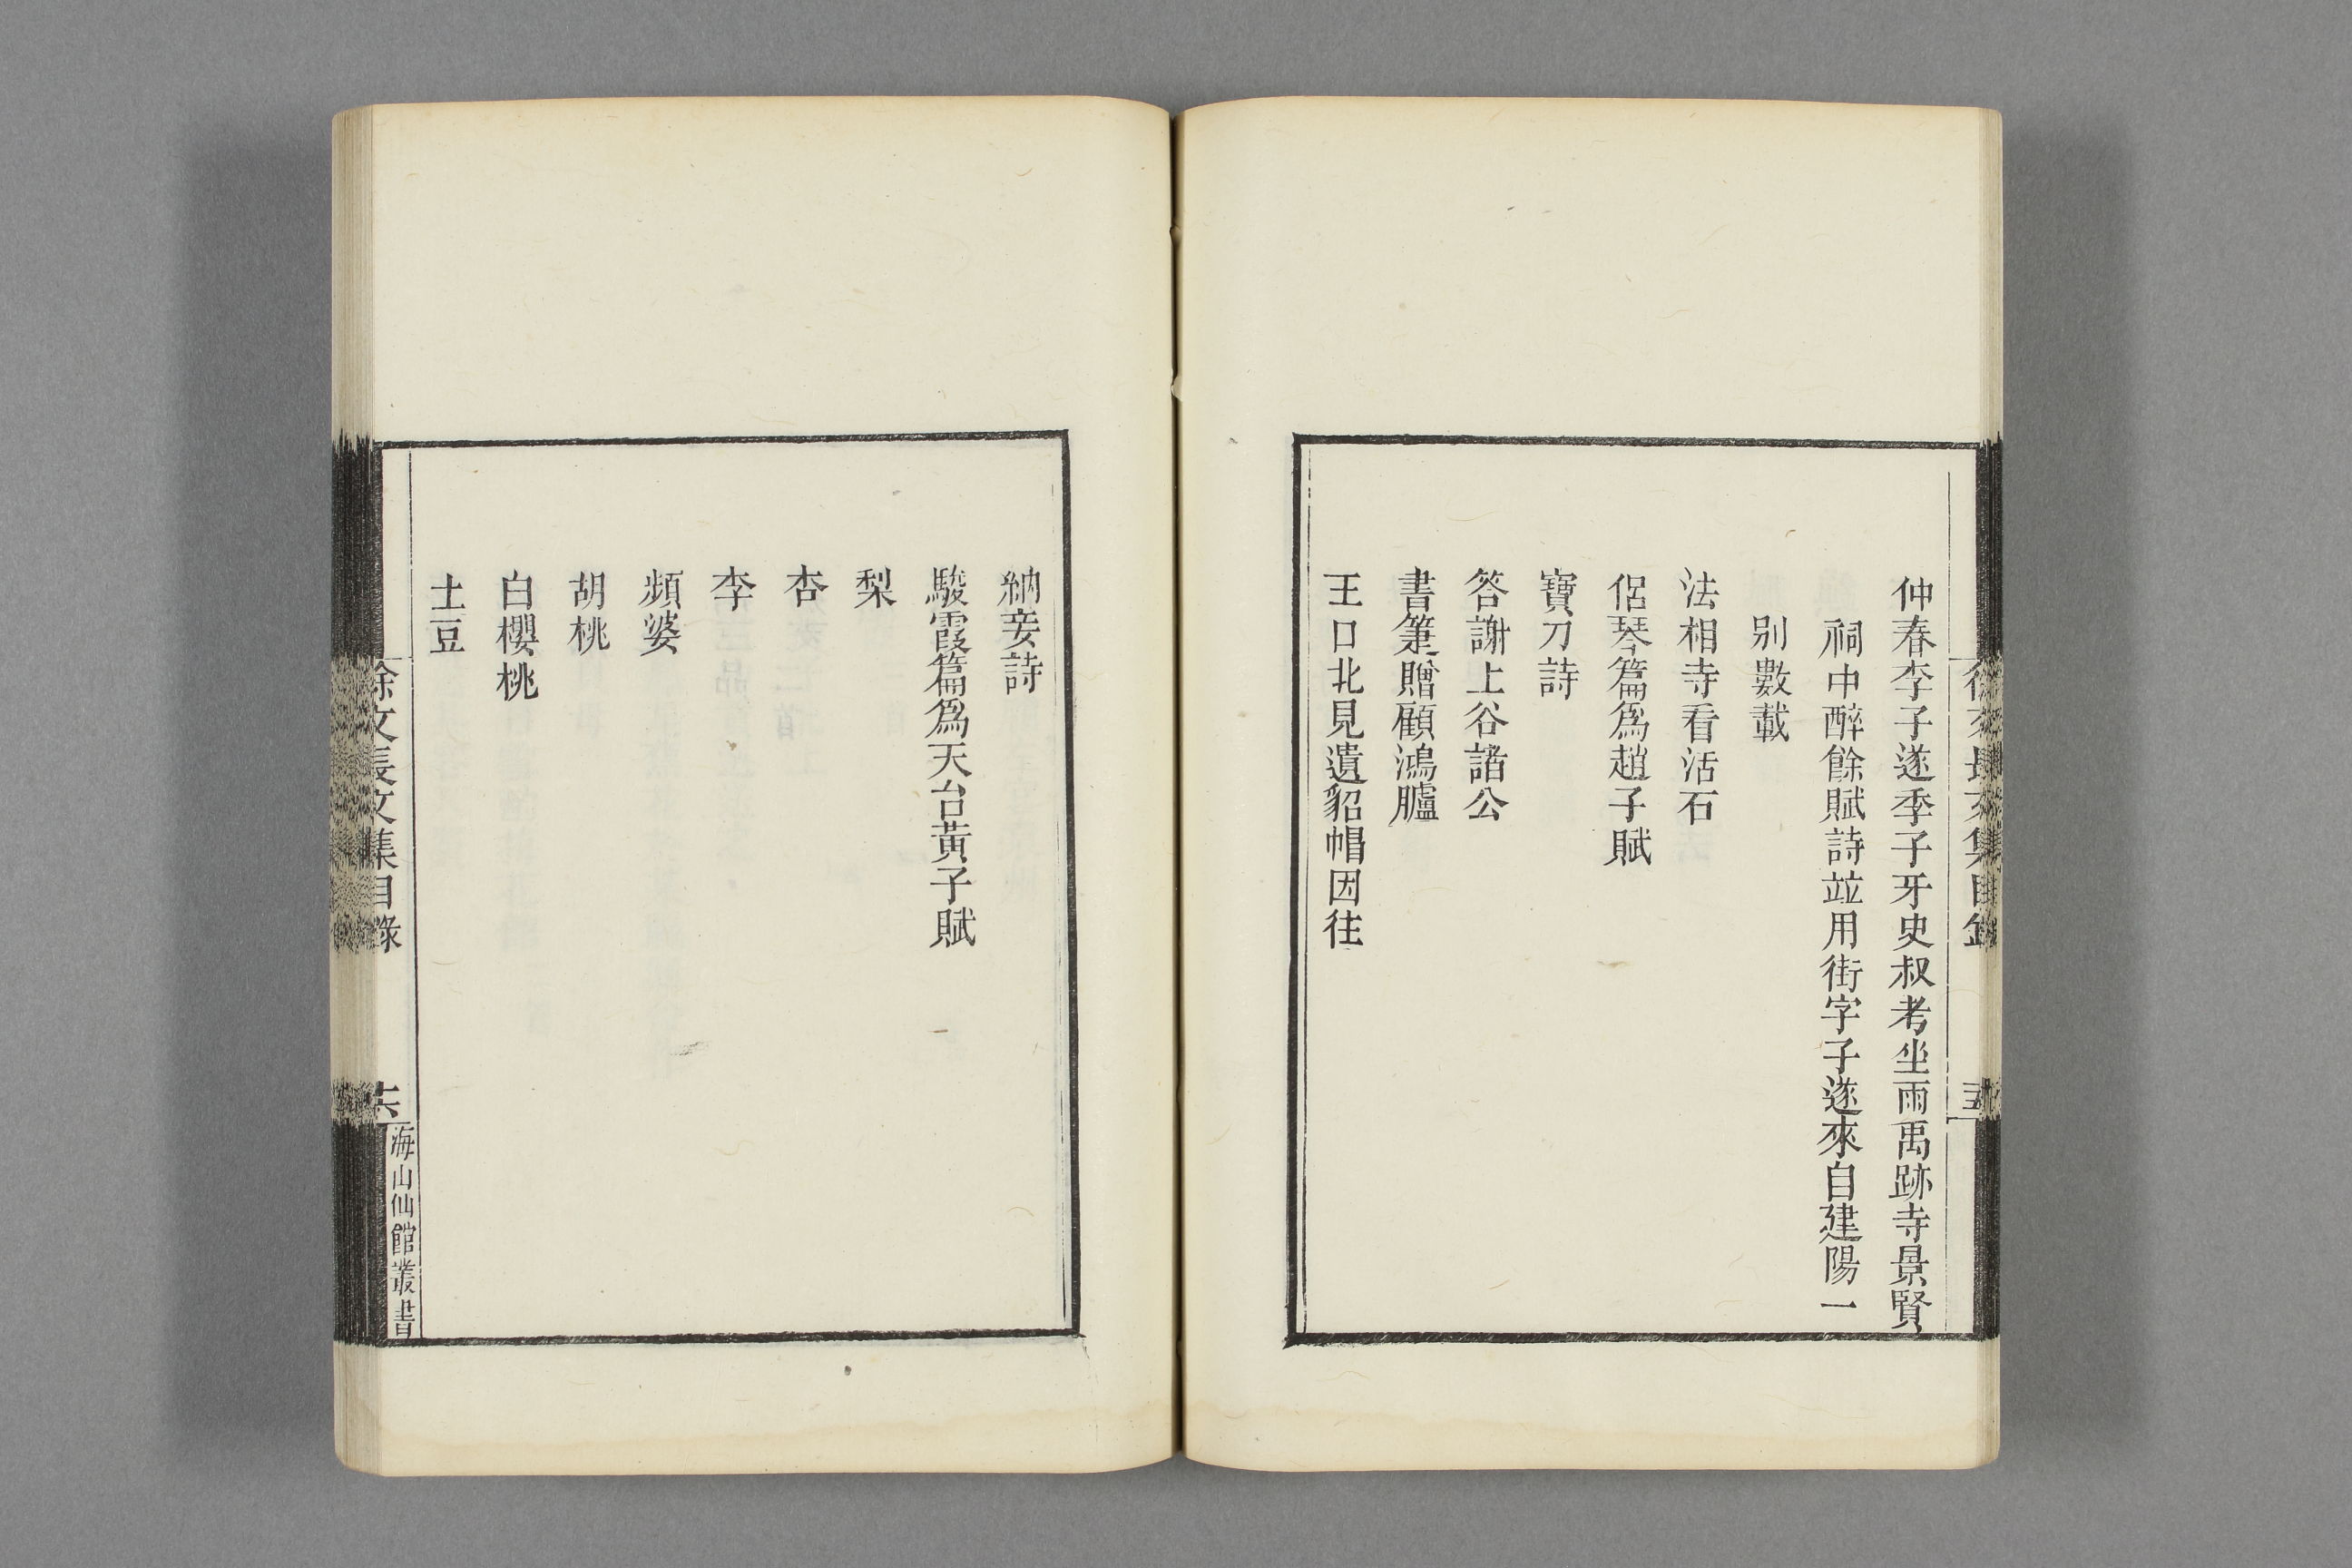 仲春李子遂季子牙史叔考坐雨禹跡寺景賢
祠中醉餘賦詩竝用街字子遂來自建陽一
别數載
法相寺看活石
侶琴篇爲趙子賦
寶刀詩
答謝上谷諸公
書箑贈顧鴻臚
王口北見遺貂帽因往
納妾詩
駿霞篇爲天台黃子賦
梨
杏
李
頻婆
胡桃
白櫻桃
土豆
徐文長文集目錄
六
海山仙館叢書